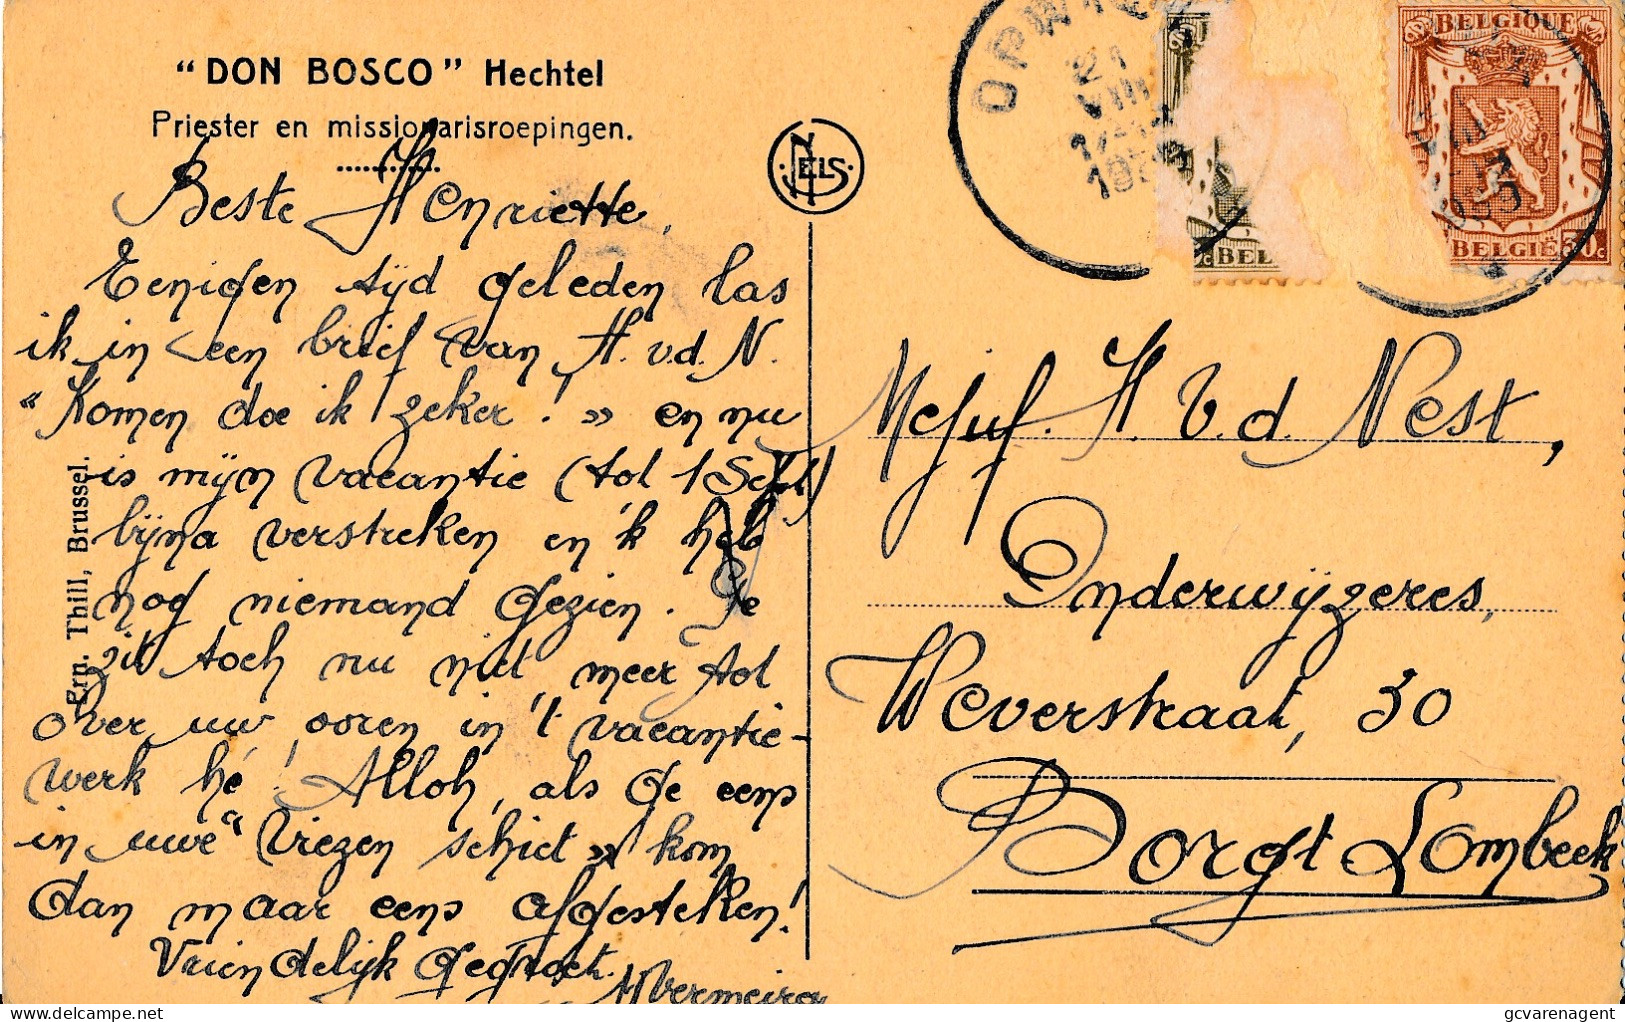 "DON BOSCO" Hechtel
Priester en missionarisroepingen.
Beste Henriette,
Eenigen tijd geleden las
ik in een brief van H. v.d. N.
"Komen doe ik zeker!" en nu
is mijn vacantie (tot 1 Sept)
bijna verstreken en 'k heb
nog niemand gezien. Ge
zit toch nu niet meer tot
over uw ooren in 't vacantie-
werk hé! Alloh, als ge eens
in uwe "Viezen schiet" kom
dan maar eens afgesteken!
Vriendelijk gegroet.
Vermeire
Ern. Thill, Brussel.
NELS
OPWIJK
21
VIII
BELGIQUE
BELGIË 30c
BEL
Mejuf. H. V. d. Nest,
Onderwijzeres,
Weverstraat, 30
Borgt Lombeek
gcvarenagent